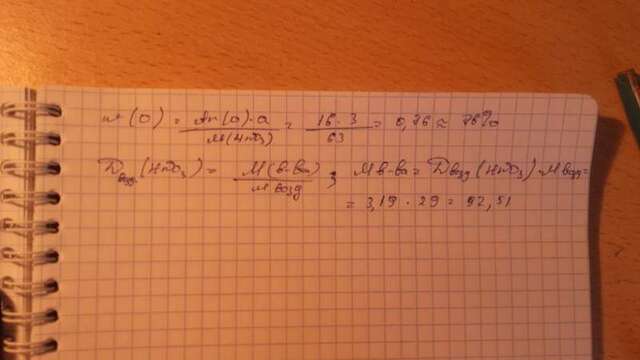 w(O) = Ar(O)·a / M(HNO3) = 16·3 / 63 = 0,76 = 76%
Двозд(HNO3) = M(в-ва) / M возд ; M в-ва = Двозд(HNO3)·M возд =
= 3,19 · 29 = 92,51